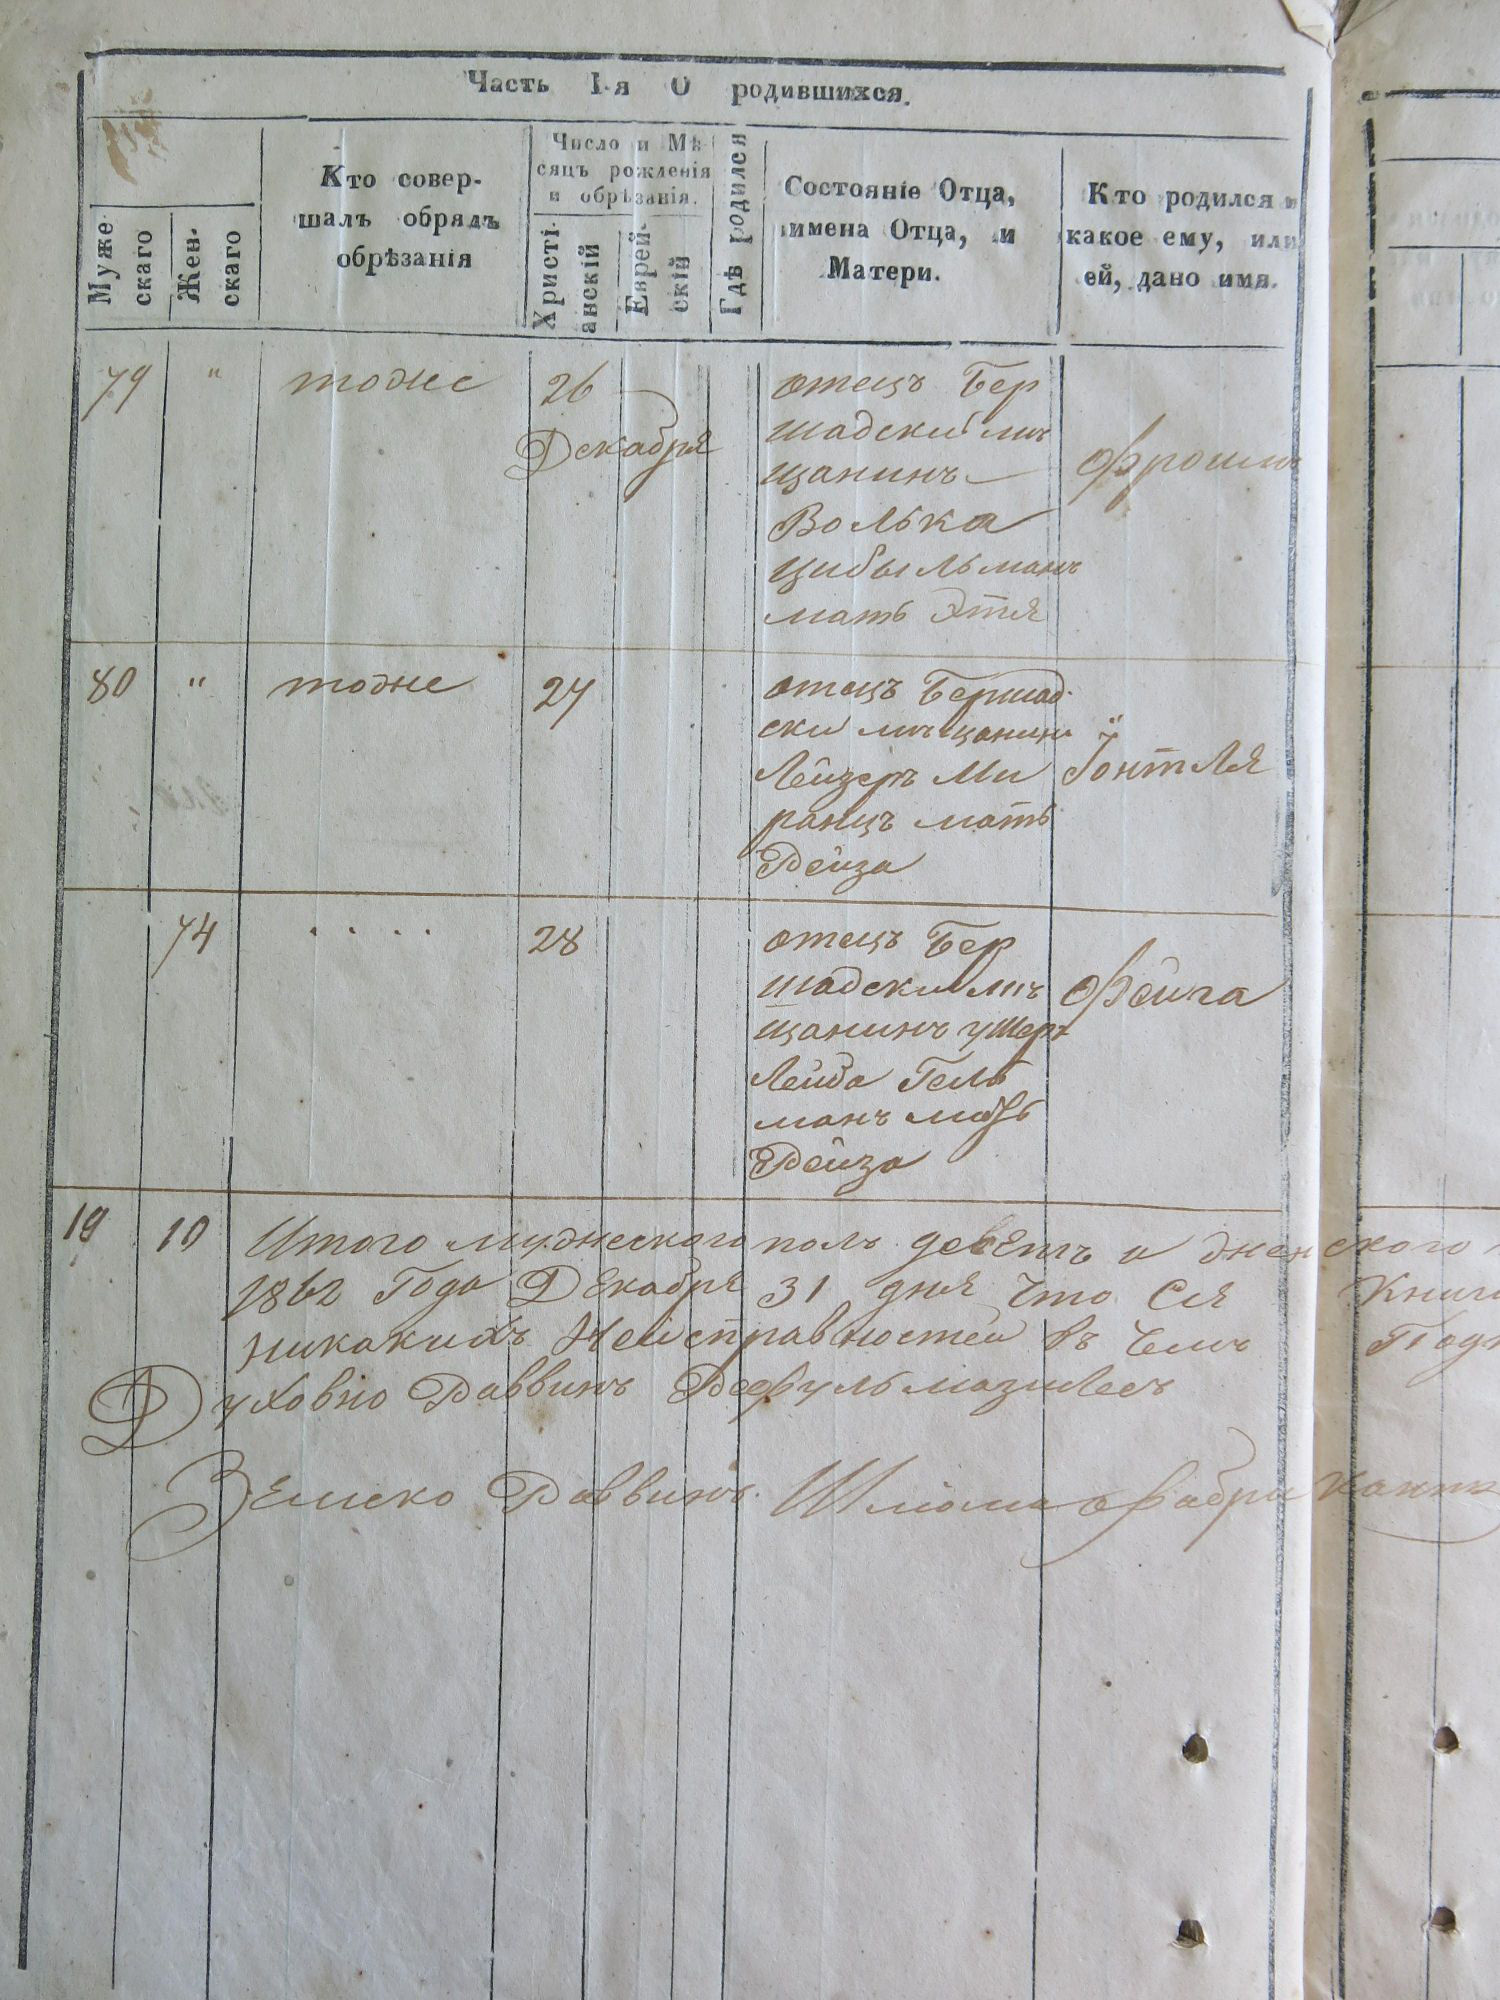 Часть I-я О родившихся.
Муже
скаго
Жен-
скаго
Кто совер-
шалъ обрядъ
обрѣзанія
Число и Мѣ-
сяцъ рожденія
и обрѣзанія.
Христі-
анскій
Еврей-
скій
Гдѣ родился
Состояніе Отца,
имена Отца, и
Матери.
Кто родился и
какое ему, или
ей, дано имя.
79 " тоже 26
Декабря
отецъ Бер
шадский мѣ
щанинъ
Волько
Цибыльманъ
мать Этя
Фроимъ
80 " тоже 27
отецъ Бершад-
ски мѣщанинъ
Лейзеръ Ми
ранцъ мать
Рейза
74 . . . . 28
отецъ Бер
шадски мѣ
щанинъ умер
Лейба Гель
манъ мать
Рейза
Фейга
19 10 Итого мужеского полъ девять и женского
1862 Года Декабря 31 дня Что Сія Книга
никакихъ Неисправностей въ Чемъ
Духовно Раввинъ
Земско Раввинъ Шлома Фабрикантъ